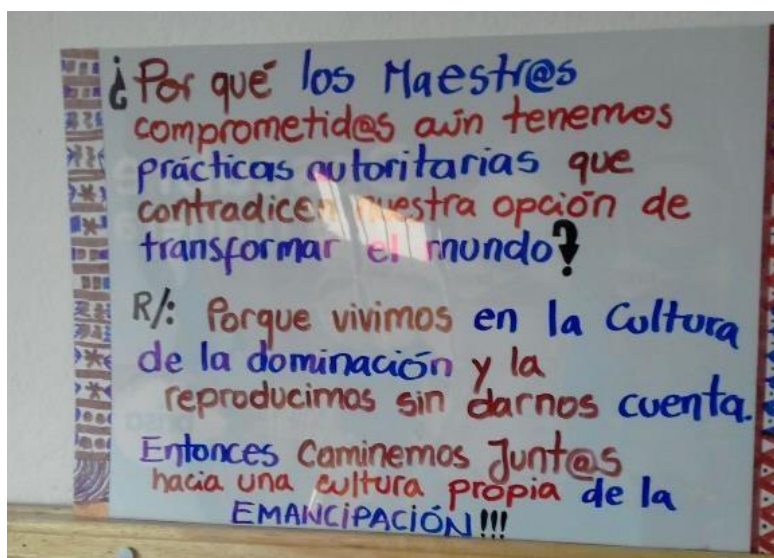 ¿Por qué los Maestr@s
comprometid@s aún tenemos
prácticas autoritarias que
contradicen nuestra opción de
transformar el mundo?
R/: Porque vivimos en la Cultura
de la dominación y la
reproducimos sin darnos cuenta.
Entonces Caminemos Junt@s
hacia una cultura propia de la
EMANCIPACIÓN!!!